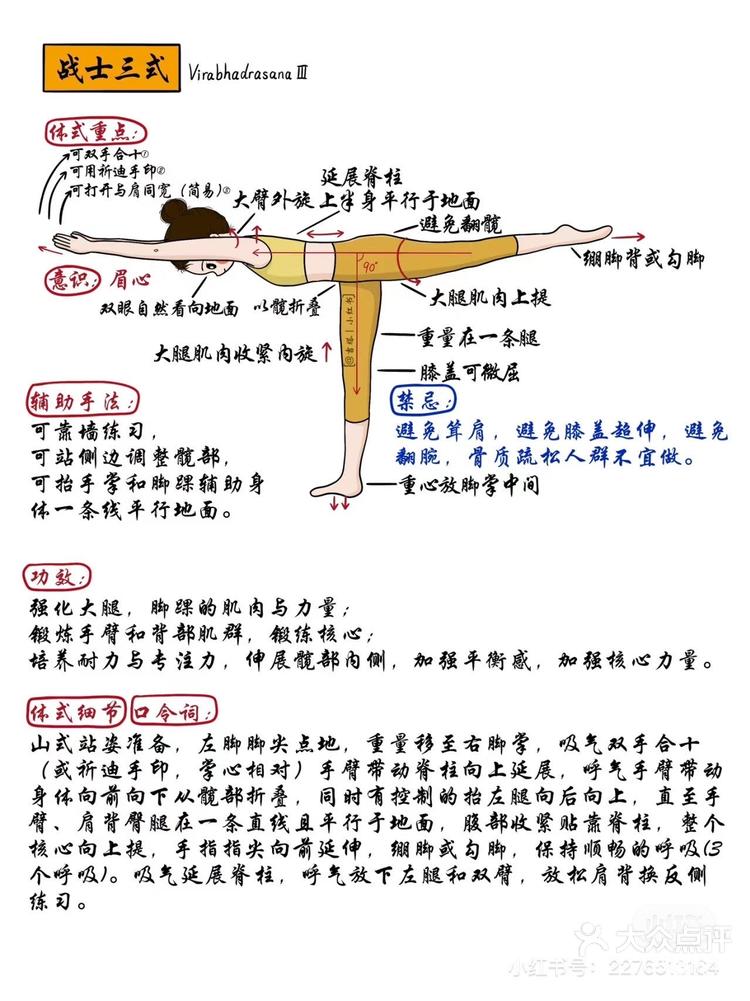 战士三式 Virabhadrasana III
体式重点:
可双手合十①
可用祈迪手印②
可打开与肩同宽(简易)③
延展脊柱
大臂外旋 上半身平行于地面
避免翻髋
绷脚背或勾脚
90°
意识: 眉心
双眼自然看向地面
以髋折叠
大腿肌肉上提
@言瑶|小红书
重量在一条腿
大腿肌肉收紧内旋
膝盖可微屈
辅助手法:
可靠墙练习,
可站侧边调整髋部,
可抬手掌和脚踝辅助身
体一条线平行地面。
禁忌:
避免耸肩, 避免膝盖超伸, 避免
翻腕, 骨质疏松人群不宜做。
重心放脚掌中间
功效:
强化大腿, 脚踝的肌肉与力量;
锻炼手臂和背部肌群, 锻练核心;
培养耐力与专注力, 伸展髋部内侧, 加强平衡感, 加强核心力量。
体式细节 口令词:
山式站姿准备, 左脚脚尖点地, 重量移至右脚掌, 吸气双手合十
(或祈迪手印, 掌心相对) 手臂带动脊柱向上延展, 呼气手臂带动
身体向前向下从髋部折叠, 同时有控制的抬左腿向后向上, 直至手
臂、肩背臀腿在一条直线且平行于地面, 腹部收紧贴靠脊柱, 整个
核心向上提, 手指指尖向前延伸, 绷脚或勾脚, 保持顺畅的呼吸(3
个呼吸)。吸气延展脊柱, 呼气放下左腿和双臂, 放松肩背换反侧
练习。
大众点评
小红书号: